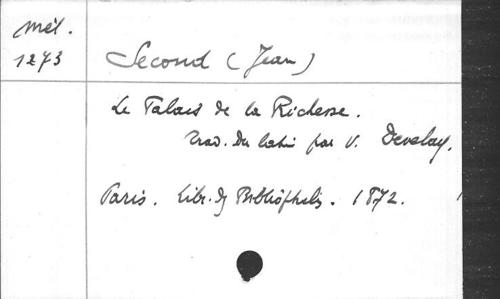 Mél.
1273
Second (Jean)
Le Palais de la Richesse.
trad. du latin par V. Develay.
Paris. Libr. des Bibliophiles. 1872.